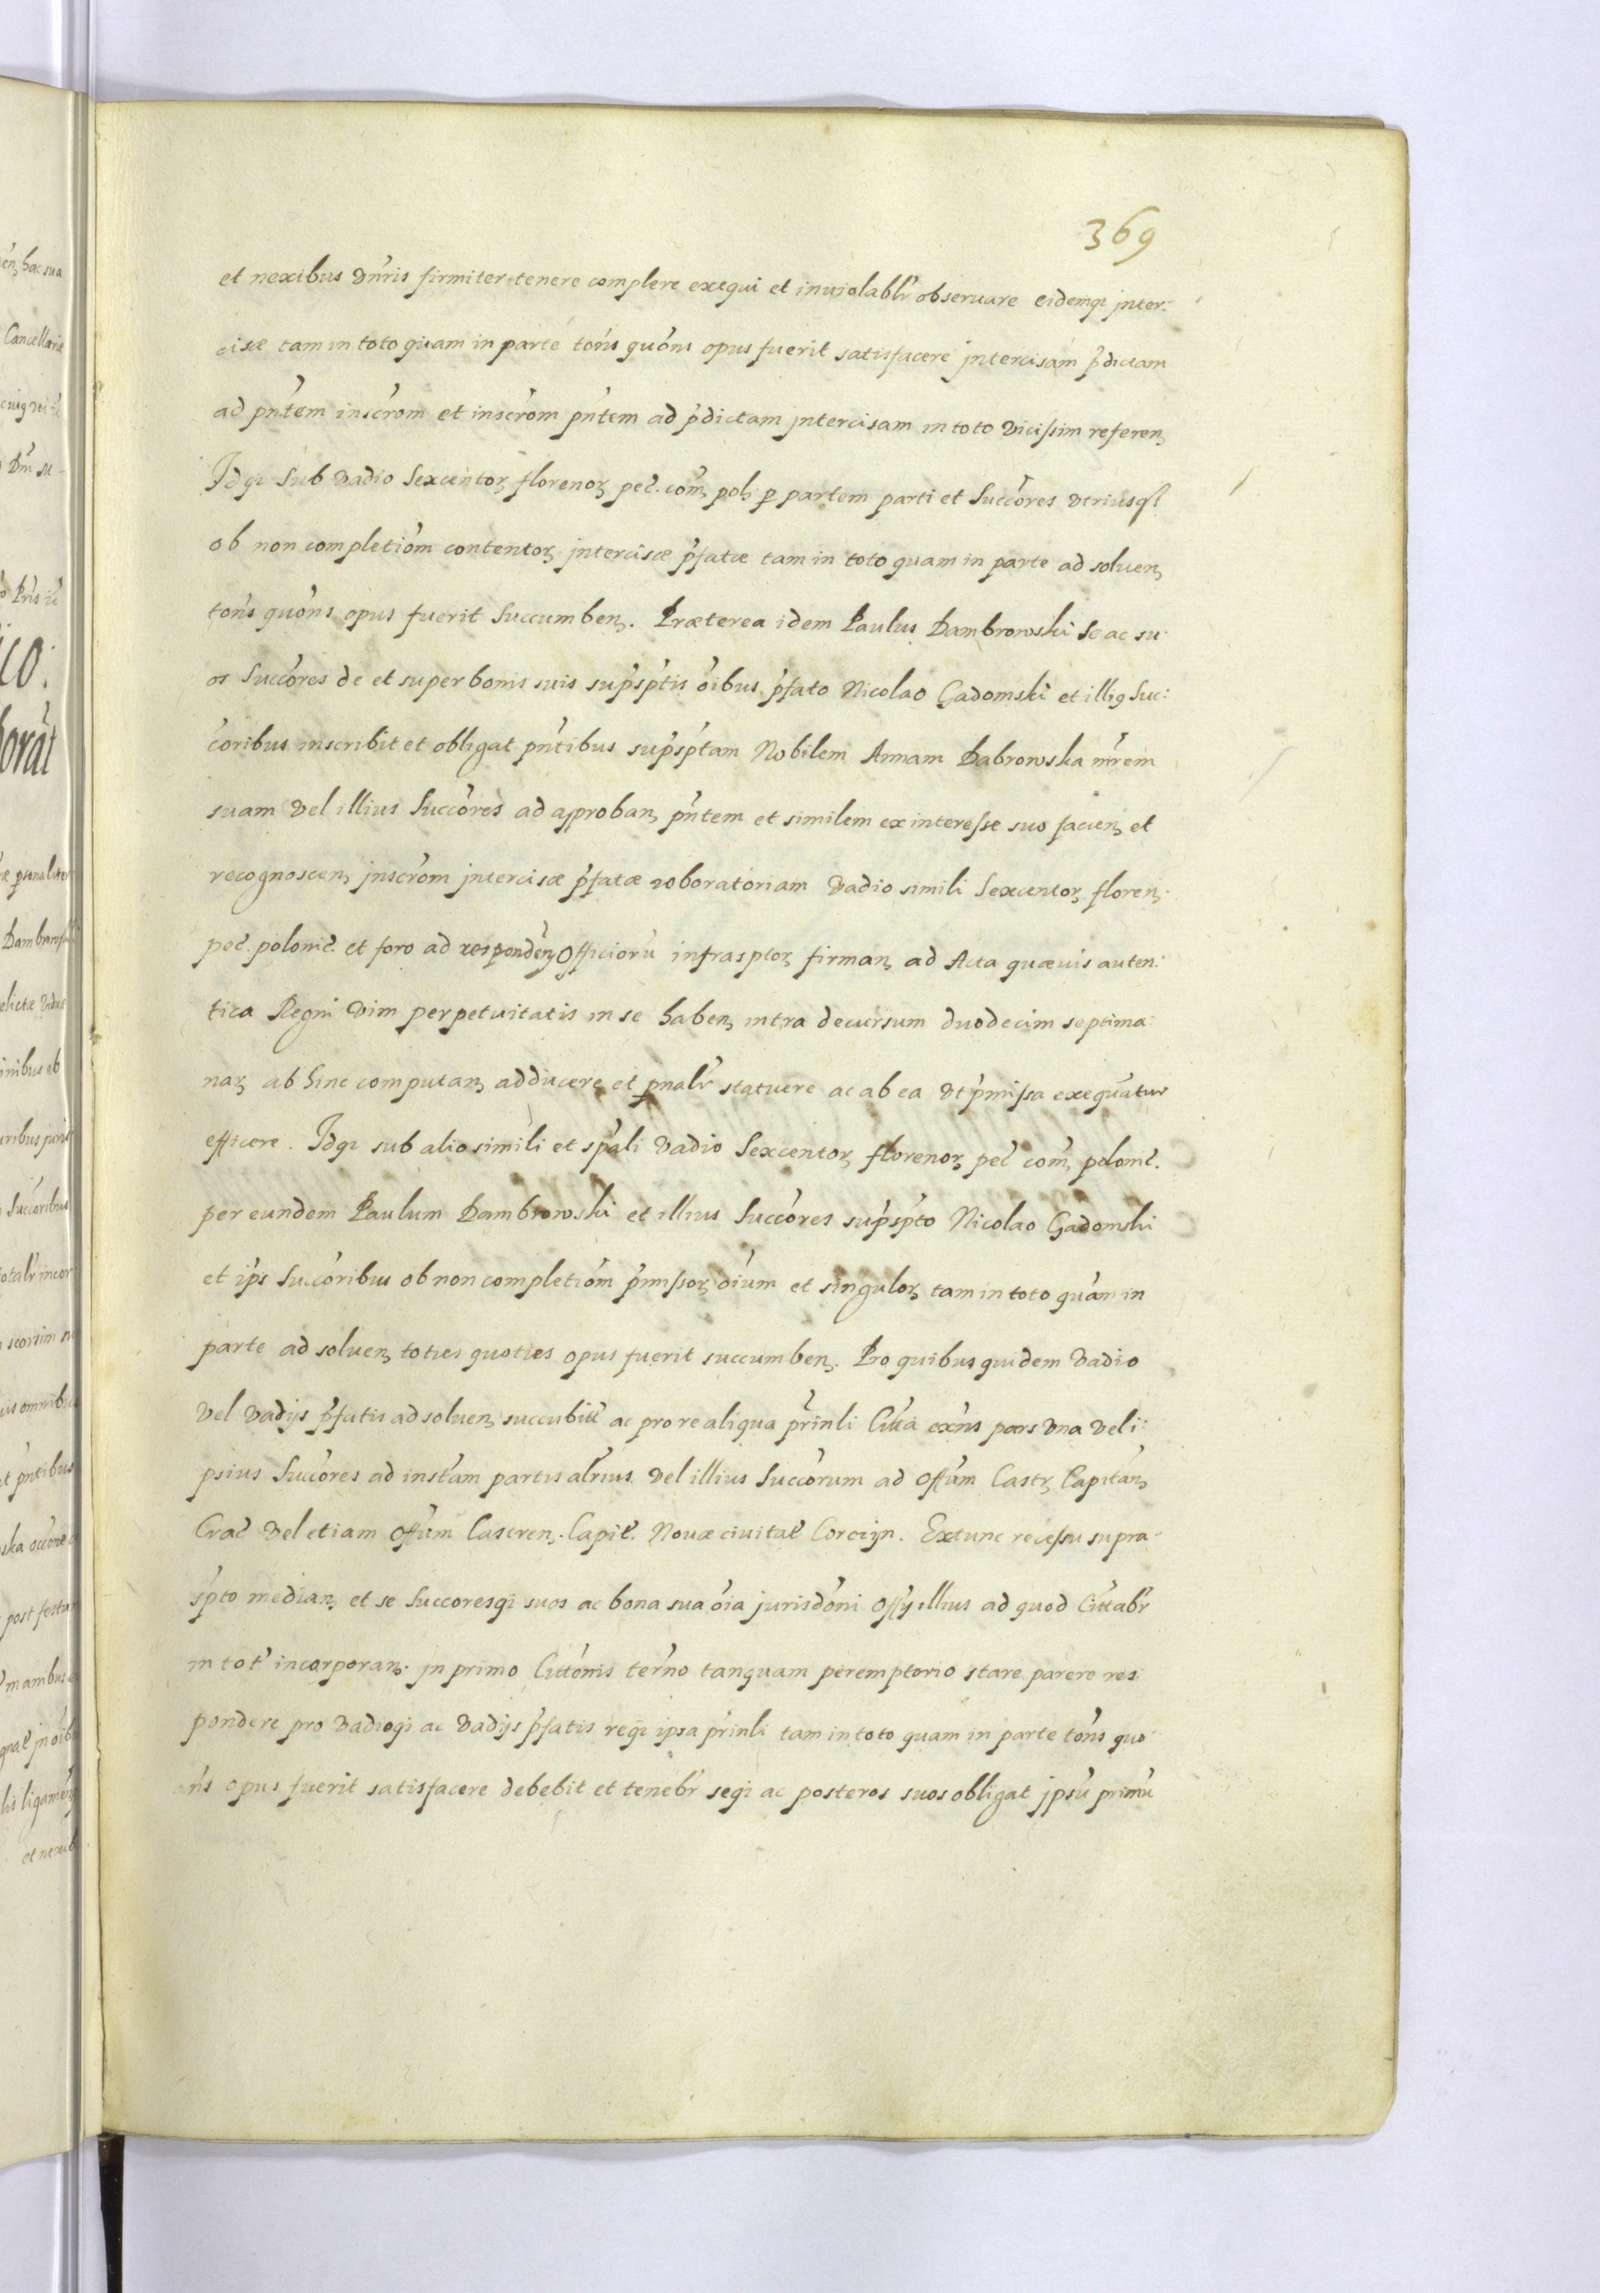 369
et nexibus dn̄ris firmiter tenere complere exequi et inuiolablr̄ obseruare eidemqɜ inter:
cisæ tam in toto quam in parte tōns quōns opus fuerit satisfacere intercisam p̄dictam
ad pn̄tem inscrōm et inscrōm pn̄tem ad p̄dictam intercisam in toto vicissim referenꝫ
Idqɜ sub vadio sexcentorꝫ florenorꝫ pec̄. com̄ꝫ polꝫ p partem parti et succōres vtriusqɜ
ob non completiōm contentorꝫ intercisæ p̄fatæ tam in toto quam in parte ad soluenꝫ
tōns quōns opus fuerit succumbenꝫ. Præterea idem Paulus Dambrowski se ac su:
os succōres de et super bonis suis sup̄sp̄tis ōibus p̄fato Nicolao Gadomski et illig suc:
cōribus inscribit et obligat pn̄tibus sup̄sp̄tam Nobilem Annam Dabrowska mr̄em
suam vel illius succōres ad approbanꝫ pn̄tem et similem ex interesse suo facienꝫ et
recognoscenꝫ inscrōm intercisæ p̄fatæ roboratoriam vadio simili sexcentorꝫ florenꝫ
pec̄. polonic̄. et foro ad respondēnꝫ Officiorū infrasptorꝫ firmanꝫ ad Acta quæuis auten:
tica Regni vim perpetuitatis in se habenꝫ intra decursum duodecim septima:
narꝫ ab hinc computanꝫ adducere et pnalr̄ statuere ac ab ea vt p̄missa exequātur
efficere. Idqɜ sub alio simili et spāli vadio sexcentorꝫ florenorꝫ pec̄ com̄ꝫ polonic̄.
per eundem Paulum Dambrowski et illius succōres sup̄sp̄to Nicolao Gadomski
et ip̄s succōribus ob non completiōm p̄missorꝫ ōium et singulorꝫ tam in toto quam in
parte ad soluenꝫ toties quoties opus fuerit succumbenꝫ. Pro quibus quidem vadio
vel vadijs p̄fatis ad soluenꝫ succubit̄ ac pro re aliqua pr̄inli Citt̄a exn̄s pars vna vel i:
psius succōres ad instām partis alr̄ius vel illius succōrum ad Offūm Castrꝫ Capitānꝫ
Crac̄ vel etiam Offūm Castrenꝫ. Capit̄. Nouæ ciuitat̄ Corcijn. Extunc recessu supra:
sp̄to medianꝫ et se successoresqɜ suos ac bona sua ōia jurisdōni Offij illius ad quod Cittabr̄
in tot̄ incorporanꝫ. in primo Cittōnis ter̄no tanquam peremptorio stare parere res:
pondere pro vadioqɜ ac vadijs p̄fatis reqɜ ipsa pr̄inli tam in toto quam in parte tōns quo:
n̄s opus fuerit satisfacere debebit et tenebr̄ seqɜ ac posteros suos obligat ipsū primū